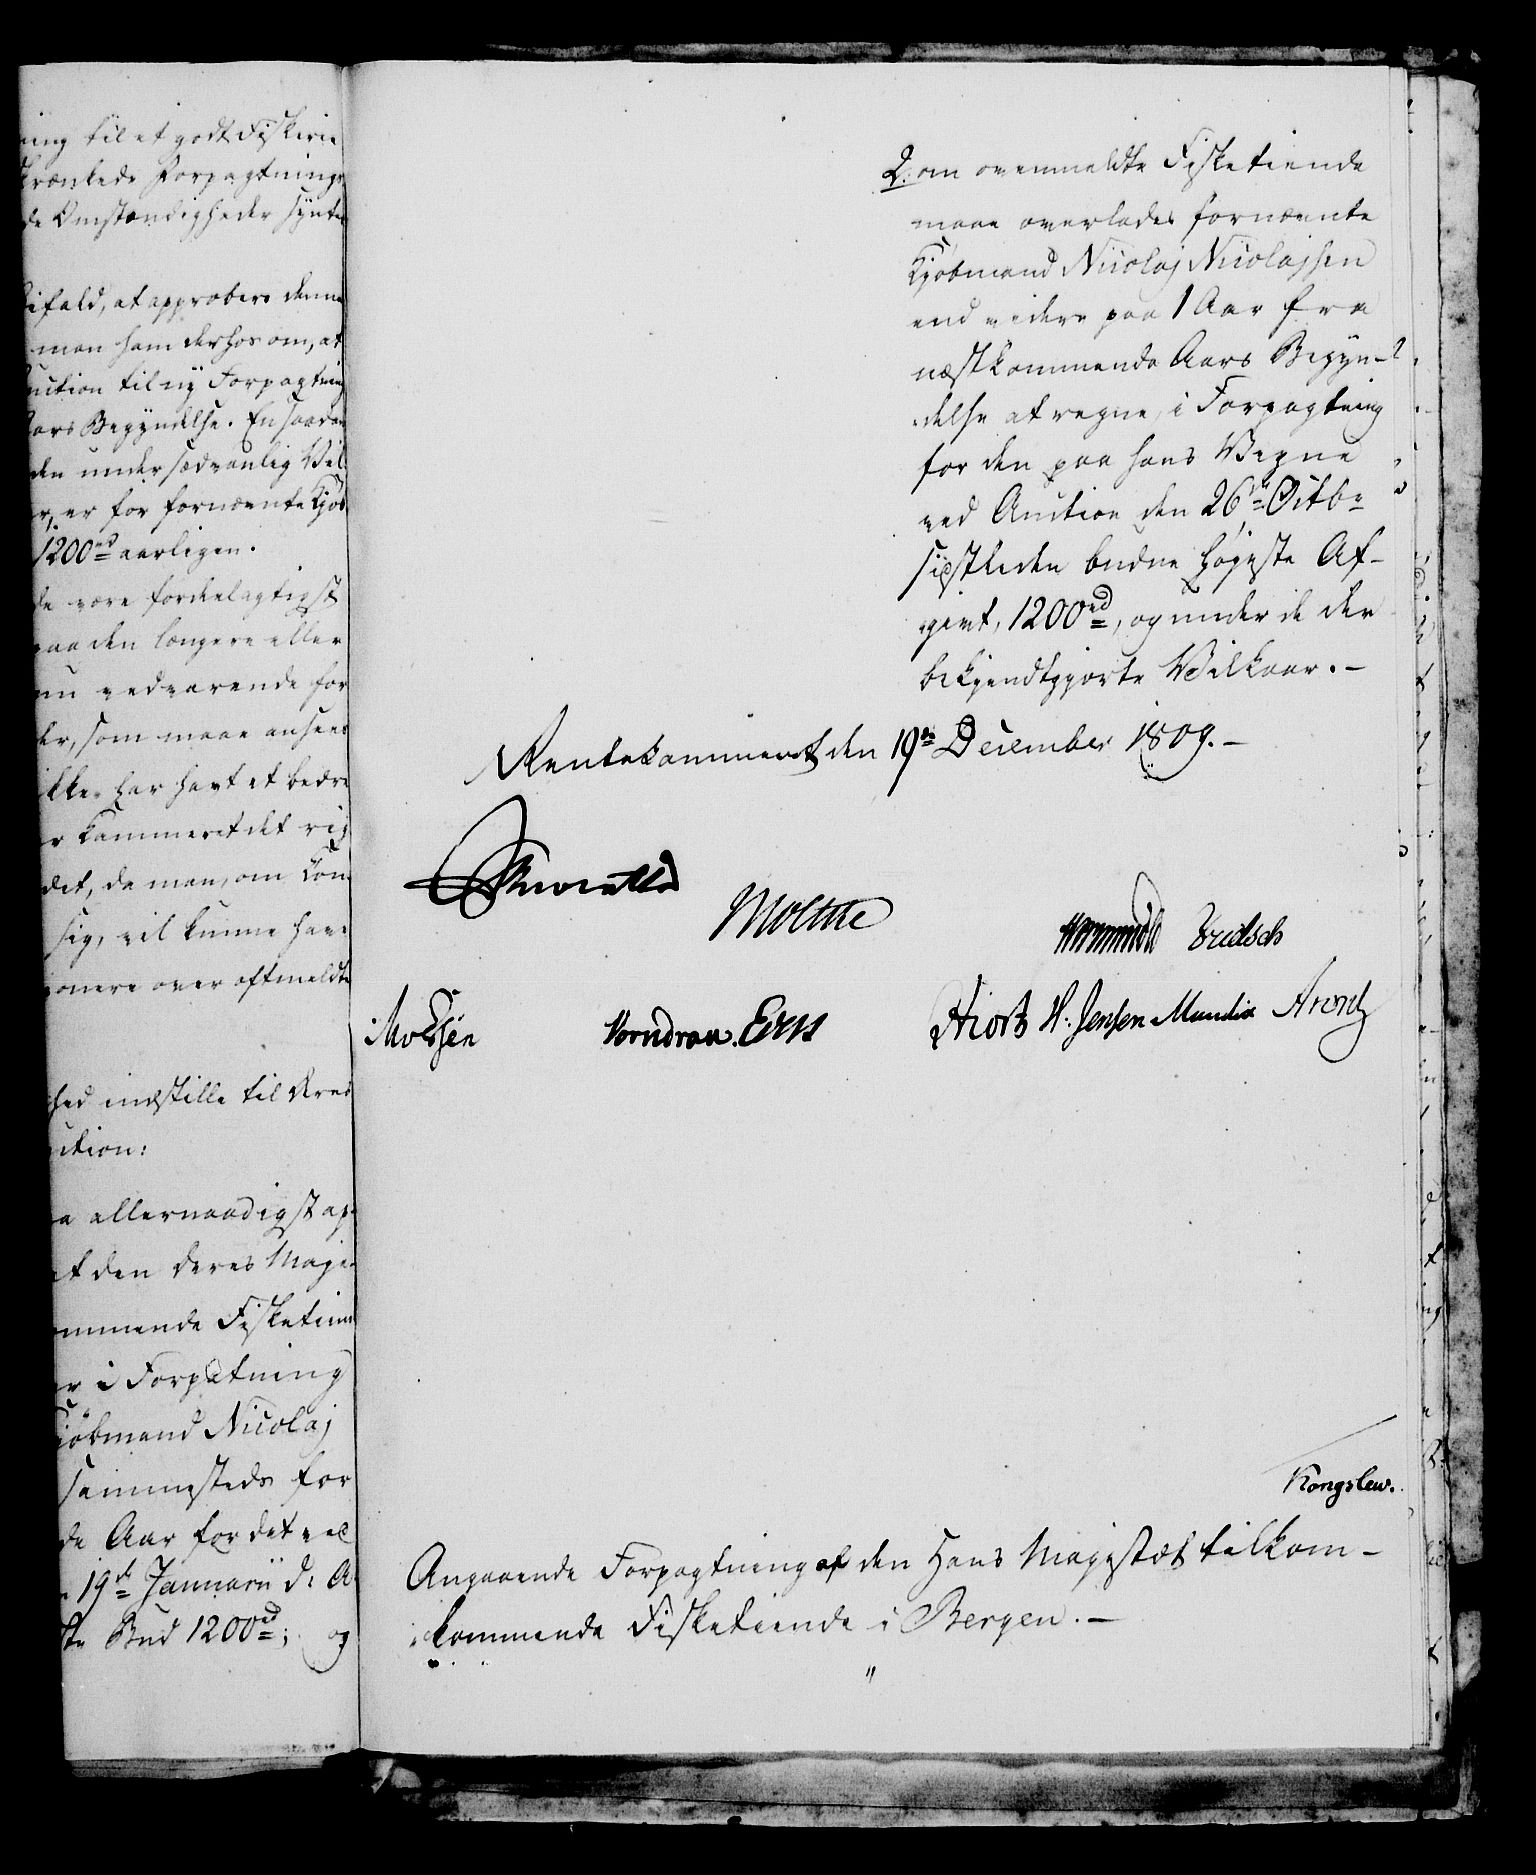 ning til et godt Fiskerie
krænkede Forpagtnings
de Omstændigheder synte
ifald, at approbere denne
man ham derhos om, at
uction til ny Forpagtning
Aars Begyndelse. En saadan
den under sædvanlig Vil
er for fornævnte Kjøb
1200 rd aarligen.
de være fordeelagtigst
paa den længere eller
nu vedvarende for
der, som maae ansees
ikke har havt et bedre
r Kammeret det rig
det, da man, om Con
sig, vil kunne hav
ponere over oftmeldte
hed indstille til Deres
ution:
a allernaadigst ap
at den Deres Maje
ommende Fisketiende
er i Forpagtning
Kjøbmand Nicolaj
sammesteds for
de Aar for det ved
19de Januarii d: A
ste Bud 1200 rd; og
2. om ovenmeldte Fisketiende
maae overlades fornævnte
Kjøbmand Nicolaj Nicolajsen
end videre paa 1 Aar fra
næstkommende Aars Begyn-
delse at regne, i Forpagtning
for den paa hans Vegne
ved Auction den 26de Octbr
sidstleden budne højeste Af-
givt, 1200 rd, og under de der
bekjendtgjorte Vilkaar. -
Rentekammeret den 19de December 1809. -
Moltke
Wormskiold
Knudsen
Vorndran.
Hiort H. Jensen Mundix Arentz
Kongslew.
Angaaende Forpagtning af den Hans Majestæt tilkom-
kommende Fisketiende i Bergen. -
"